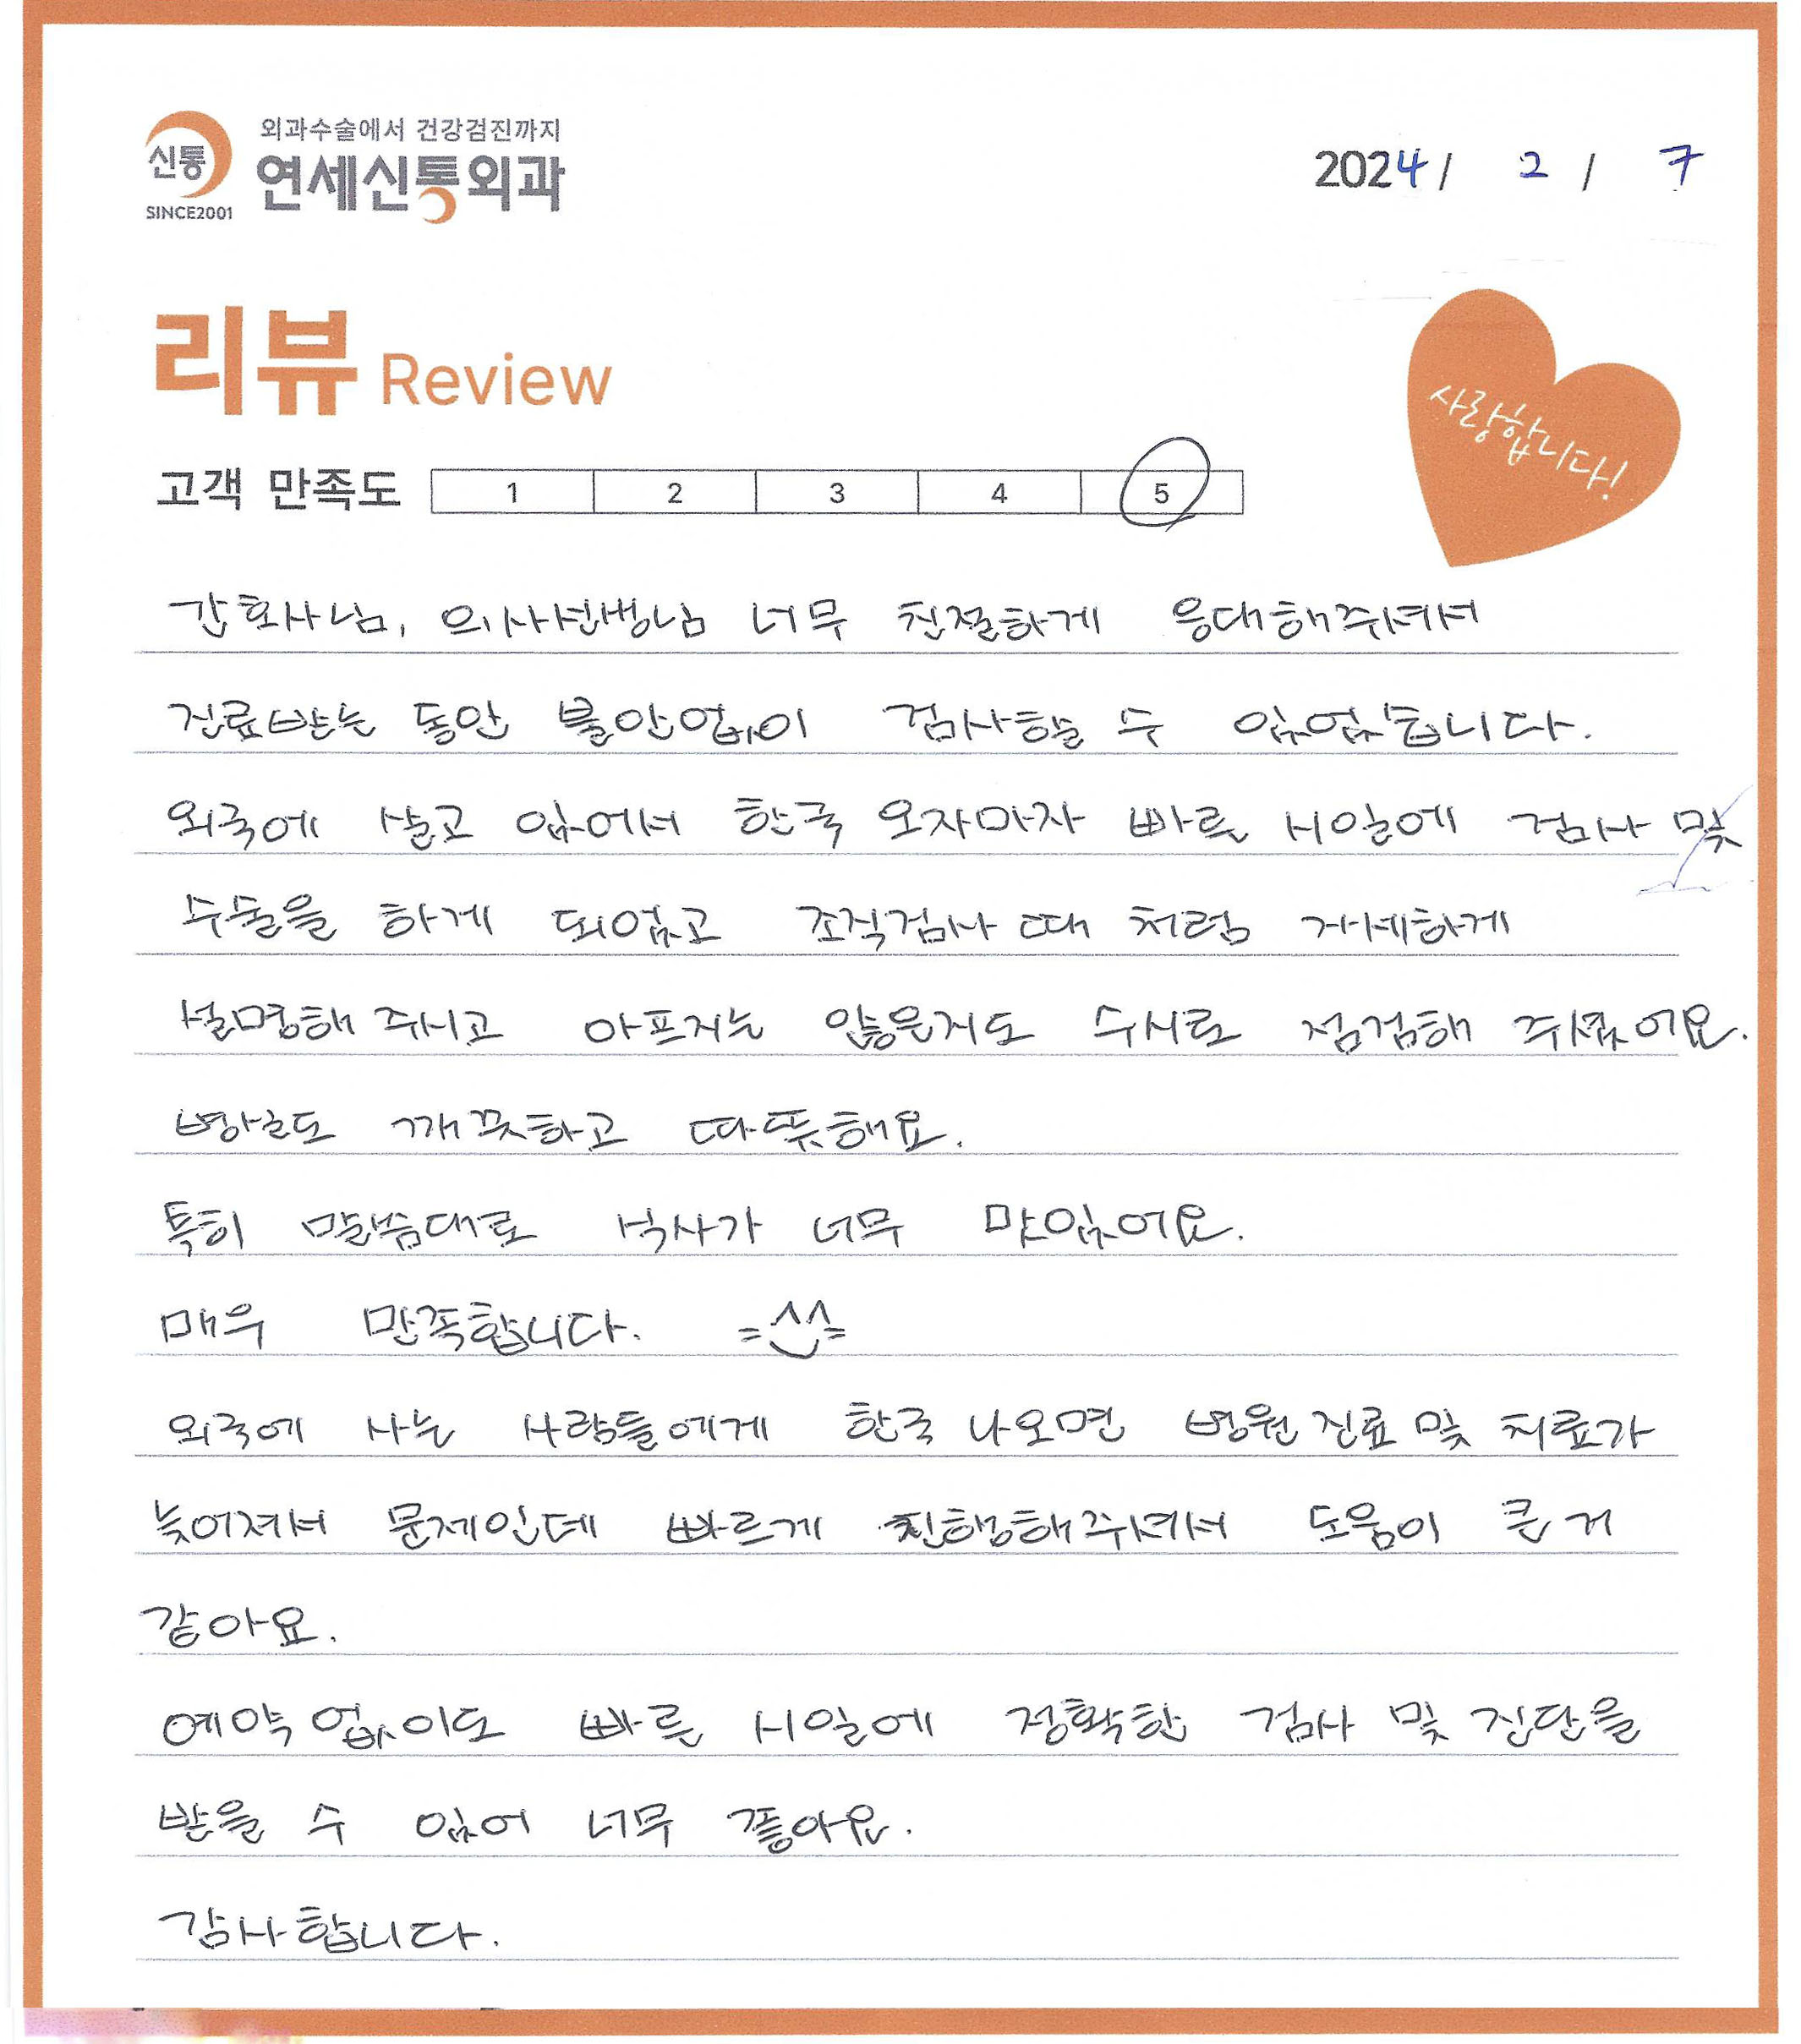 외과수술에서 건강검진까지
신통
연세신통외과
SINCE2001
2024 / 2 / 7
리뷰 Review
사랑합니다!
고객 만족도 1 2 3 4 5
간호사님, 의사선생님 너무 친절하게 응대해주셔서
진료받는 동안 불안없이 검사할 수 있었습니다.
외국에 살고 있어서 한국 오자마자 빠른 시일에 검사 및
수술을 하게 되었고 조직검사 때 처럼 자세하게
설명해 주시고 아프지는 않은지도 수시로 점검해 주셨어요.
병실도 깨끗하고 따뜻해요.
특히 말씀대로 식사가 너무 맛있어요.
매우 만족합니다. =^^=
외국에 사는 사람들에게 한국 나오면 병원 진료 및 치료가
늦어져서 문제인데 빠르게 진행해주셔서 도움이 큰 거
같아요.
예약 없이도 빠른 시일에 정확한 검사 및 진단을
받을 수 있어 너무 좋아요.
감사합니다.